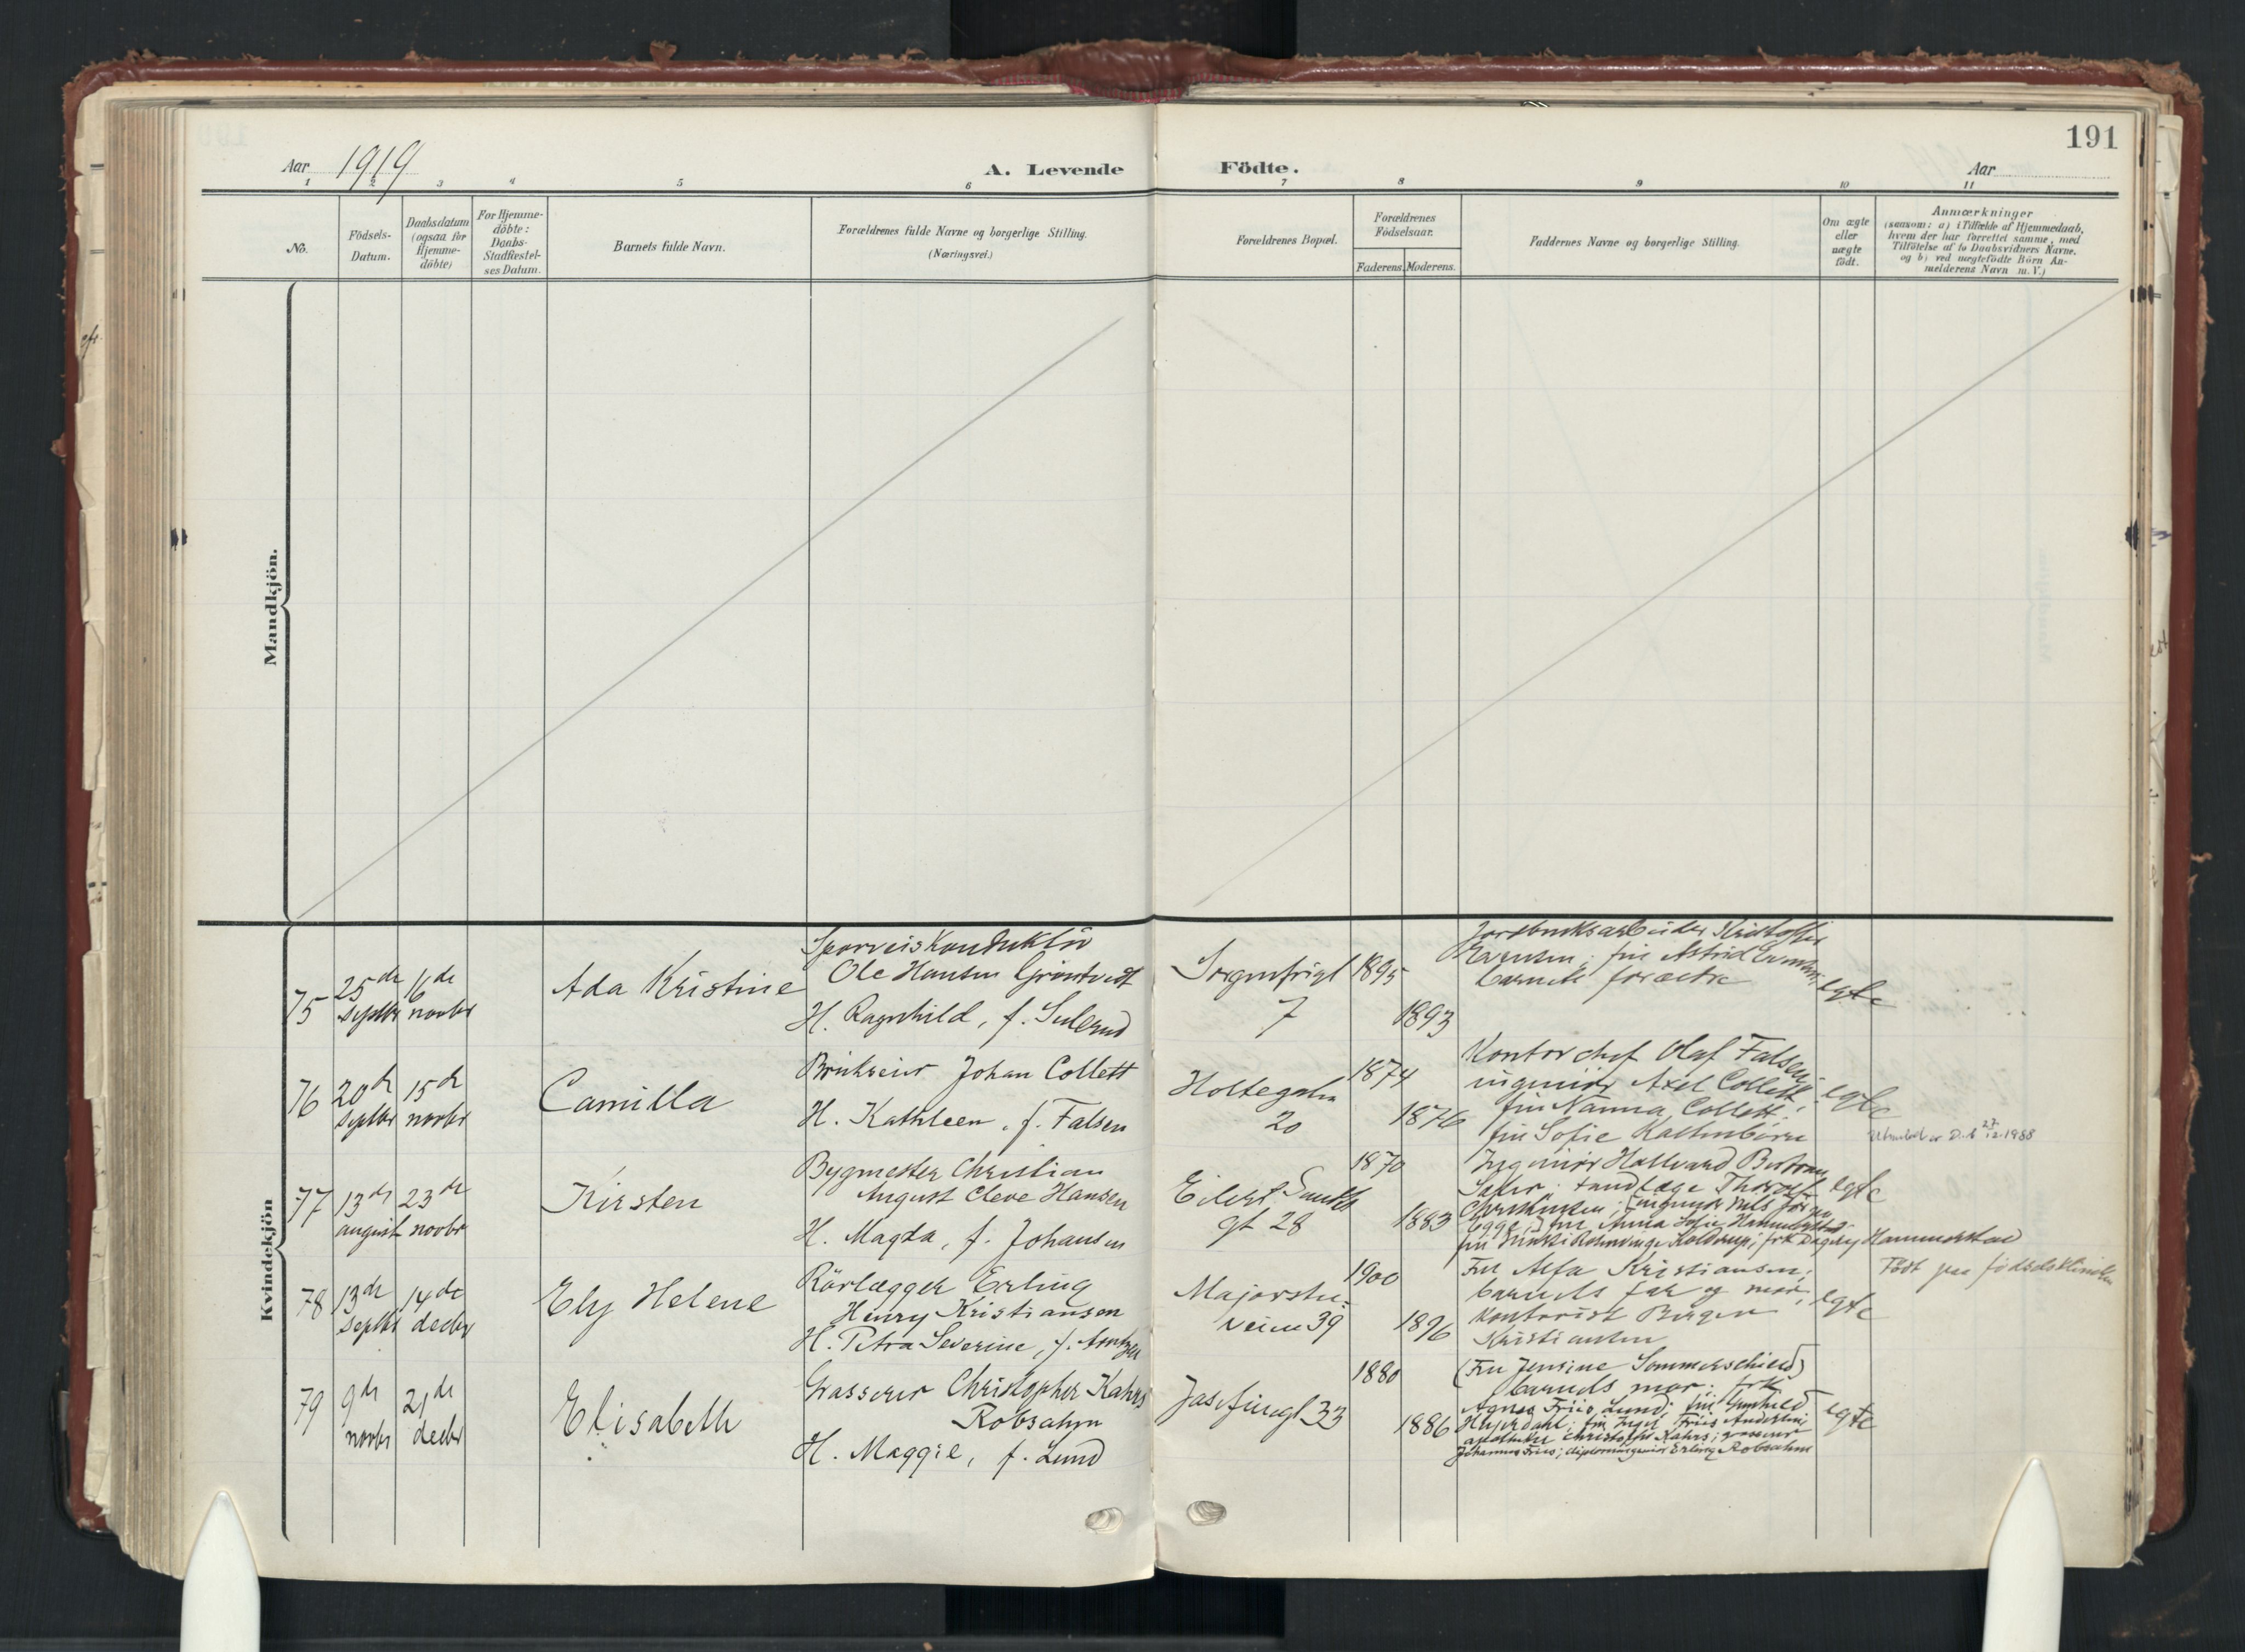 191
Aar 1919
A. Levende Födte.
Aar
1 2 3 4 5 6 7 8 9 10 11
No.
Födsels-
Datum.
Daabsdatum
(ogsaa for
Hjemme-
döbte)
For Hjemme-
döbte:
Daabs-
Stadfestel-
ses Datum.
Barnets fulde Navn.
Forældrenes fulde Navne og borgerlige Stilling.
(Næringsvei.)
Forældrenes Bopæl.
Forældrenes
Födselsaar.
Faderens. Moderens.
Faddernes Navne og borgerlige Stilling.
Om ægte
eller
uægte
födt.
Anmærkninger
(saasom: a) i Tilfælde af Hjemmedaab,
hvem der har forrettet samme, med
Tilföielse af to Daabsvidners Navne.
og b) ved uægtefödte Börn An-
melderens Navn m. V.)
Mandkjön.
Kvindekjön
75
25de
septbr
16de
novbr
Ada Kristine
Sporveiskonduktör
Ole Hansen Gröntvedt
H. Ragnhild, f.
Sorgenfrigt
7
1895
1893
Jordbruksarbeider Kristoffer
fru Astrid
barnets forældre
egte
76
20de
septbr
15de
novbr
Camilla
Brukseier Johan Collett
H. Kathleen, f. Falsen
Holtegaten
20
1874
1876
Kontorchef Olaf Falsen;
ingeniör Axel Collett;
fru Nanna Collett;
fru Sofie
egte
27/12 1988
77
13de
august
23de
novbr
Kirsten
Bygmester Christian
August Cleve Hansen
H. Magda, f. Johansen
Eilert Sundts
gt 28
1870
1883
Ingeniör Hallvard
tandlæge Thorolf
Christensen; ingeniör Nils Jörgen
Egge; fru Anna Sofie
frk Dagny Hammerstad
egte
78
13de
septbr
14de
decbr
Ely Helene
Rörlægger Erling
Henry Kristiansen
H. Petra Severine, f. Arntzen
Majorstu-
veien 39
1900
1896
Fru Alfa Kristiansen;
barnets far og mor;
kontorist Birger
Kristiansen
egte
Födt paa födselsklinikken
79
9de
novbr
21de
decbr
Elisabeth
Grosserer Christopher Kahrs
Robsahm
H. Maggie, f. Lund
Josefinegt 33
1880
1886
(Fru Jensine Sommerschield)
barnets mor; frk
Agnes Friis Lund; fru Gunhild
Heyerdahl; fru Inger Friis
apotheker Christopher Kahrs; grosserer
Johannes Friis; diplomingeniör Erling Robsahm
egte